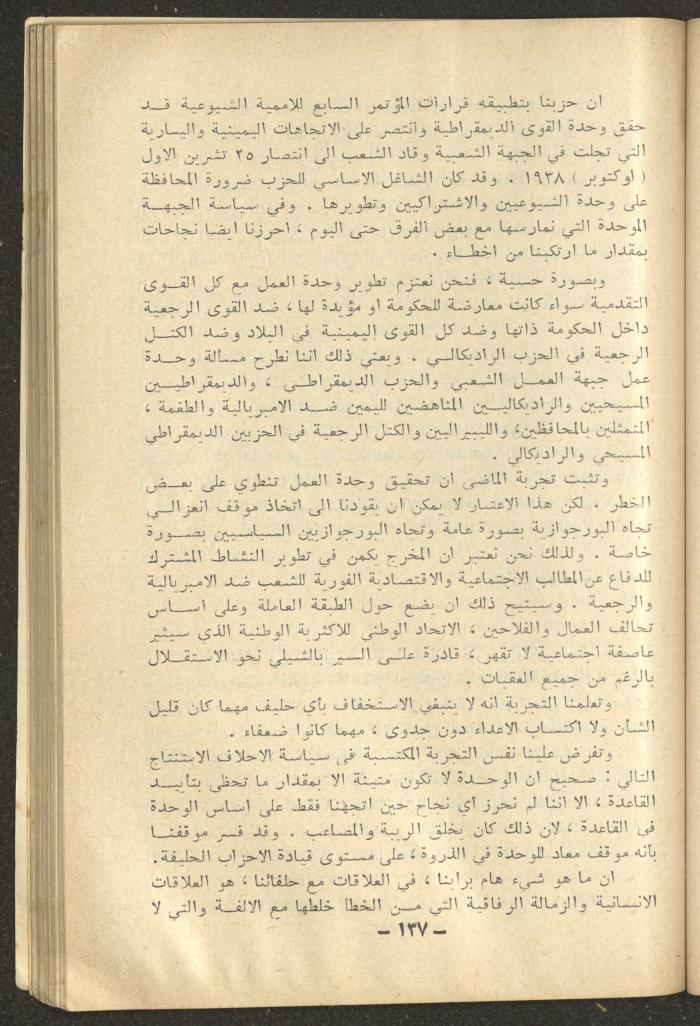 ان حزبنا بتطبيقه قرارات المؤتمر السابع للاممية الشيوعية قد
حقق وحدة القوى الديمقراطية وانتصر على الاتجاهات اليمينية واليسارية
التي تجلت في الجبهة الشعبية وقاد الشعب الى انتصار ٢٥ تشرين الاول
( اوكتوبر ) ١٩٣٨ . وقد كان الشاغل الاساسي للحزب ضرورة المحافظة
على وحدة الشيوعيين والاشتراكيين وتطويرها . وفي سياسة الجبهة
الموحدة التي نمارسها مع بعض الفرق حتى اليوم ، احرزنا ايضا نجاحات
بمقدار ما ارتكبنا من اخطاء .
وبصورة حسية ، فنحن نعتزم تطوير وحدة العمل مع كل القوى
التقدمية سواء كانت معارضة للحكومة او مؤيدة لها ، ضد القوى الرجعية
داخل الحكومة ذاتها وضد كل القوى اليمينية في البلاد وضد الكتل
الرجعية في الحزب الراديكالي . ويعني ذلك اننا نطرح مسألة وحدة
عمل جبهة العمل الشعبي والحزب الديمقراطي ، والديمقراطيين
المسيحيين والراديكاليين المناهضين لليمين ضد الامبريالية والطغمة ،
المتمثلين بالمحافظين، والليبيراليين والكتل الرجعية في الحزبين الديمقراطي
المسيحي والراديكالي .
وتثبت تجربة الماضي ان تحقيق وحدة العمل تنطوي على بعض
الخطر . لكن هذا الاعتبار لا يمكن ان يقودنا الى اتخاذ موقف انعزالي
تجاه البورجوازية بصورة عامة وتجاه البورجوازيين السياسيين بصورة
خاصة . ولذلك نحن نعتبر ان المخرج يكمن في تطوير النشاط المشترك
للدفاع عن المطالب الاجتماعية والاقتصادية الفورية للشعب ضد الامبريالية
والرجعية . وسيتيح ذلك ان يضع حول الطبقة العاملة وعلى اساس
تحالف العمال والفلاحين ، الاتحاد الوطني للاكثرية الوطنية الذي سيثير
عاصفة اجتماعية لا تقهر ، قادرة على السير بالشيلي نحو الاستقلال
بالرغم من جميع العقبات .
وتعلمنا التجربة انه لا ينبغي الاستخفاف بأي حليف مهما كان قليل
الشأن ولا اكتساب الاعداء دون جدوى ، مهما كانوا ضعفاء .
وتفرض علينا نفس التجربة المكتسبة في سياسة الاحلاف الاستنتاج
التالي : صحيح ان الوحدة لا تكون متينة الا بمقدار ما تحظى بتأييد
القاعدة ، الا اننا لم نحرز أي نجاح حين اتجهنا فقط على اساس الوحدة
في القاعدة ، لان ذلك كان يخلق الريبة والمصاعب . وقد فسر موقفنا
بأنه موقف معاد للوحدة في الذروة ، على مستوى قيادة الاحزاب الحليفة.
ان ما هو شيء هام براينا ، في العلاقات مع حلفائنا ، هو العلاقات
الانسانية والزمالة الرفاقية التي من الخطا خلطها مع الالفة والتي لا
ـ ١٣٧ ـ